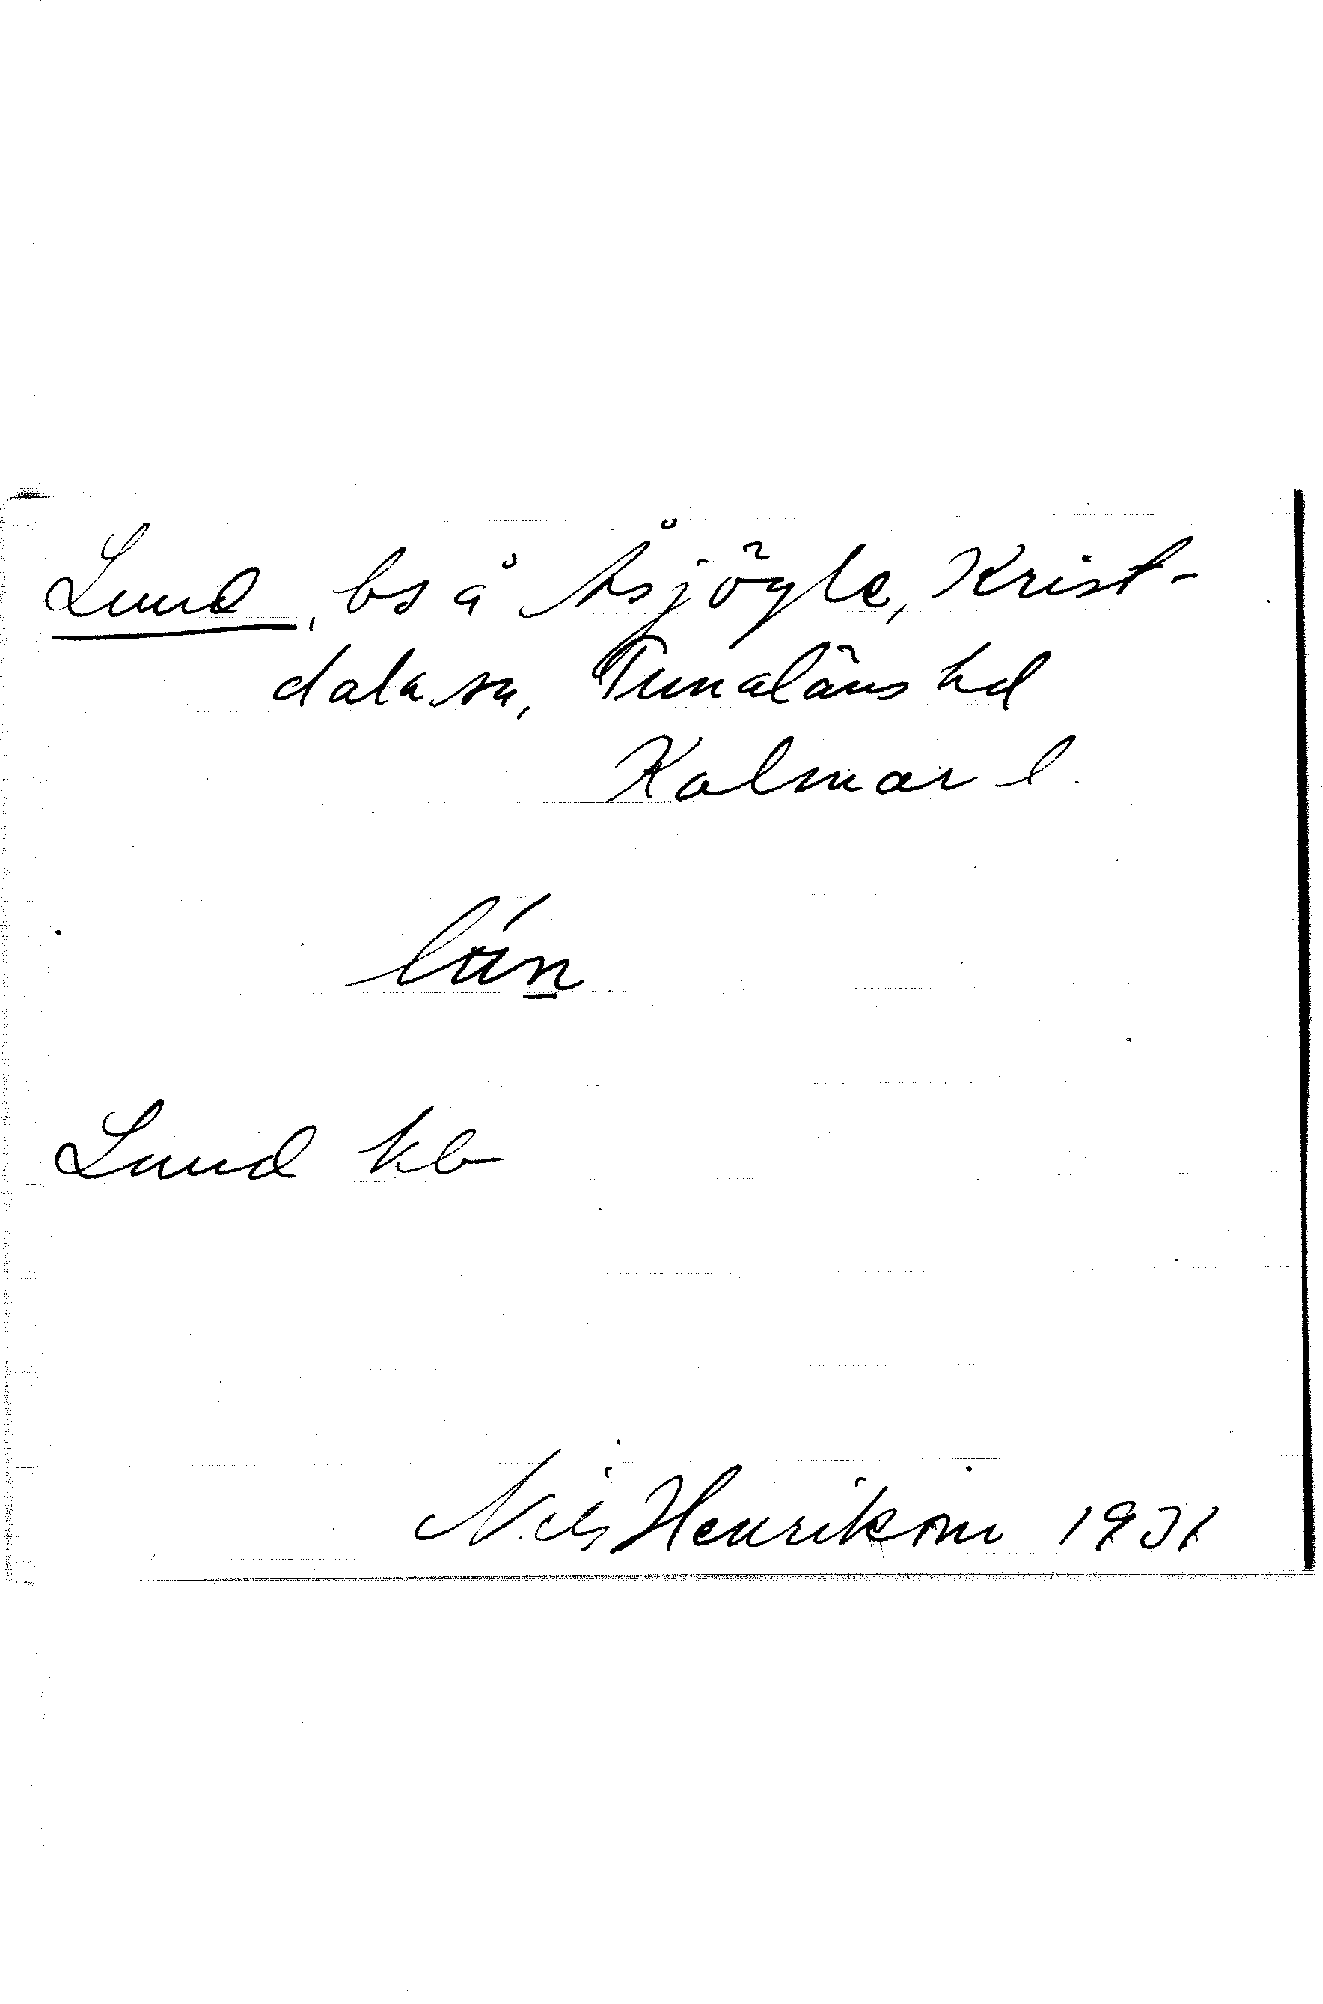 Lund, bs å Åsjögle, Krist-
dala sn, Tunaläns hd
Kalmar l.
Lund kb
Nils Henrikson 1931